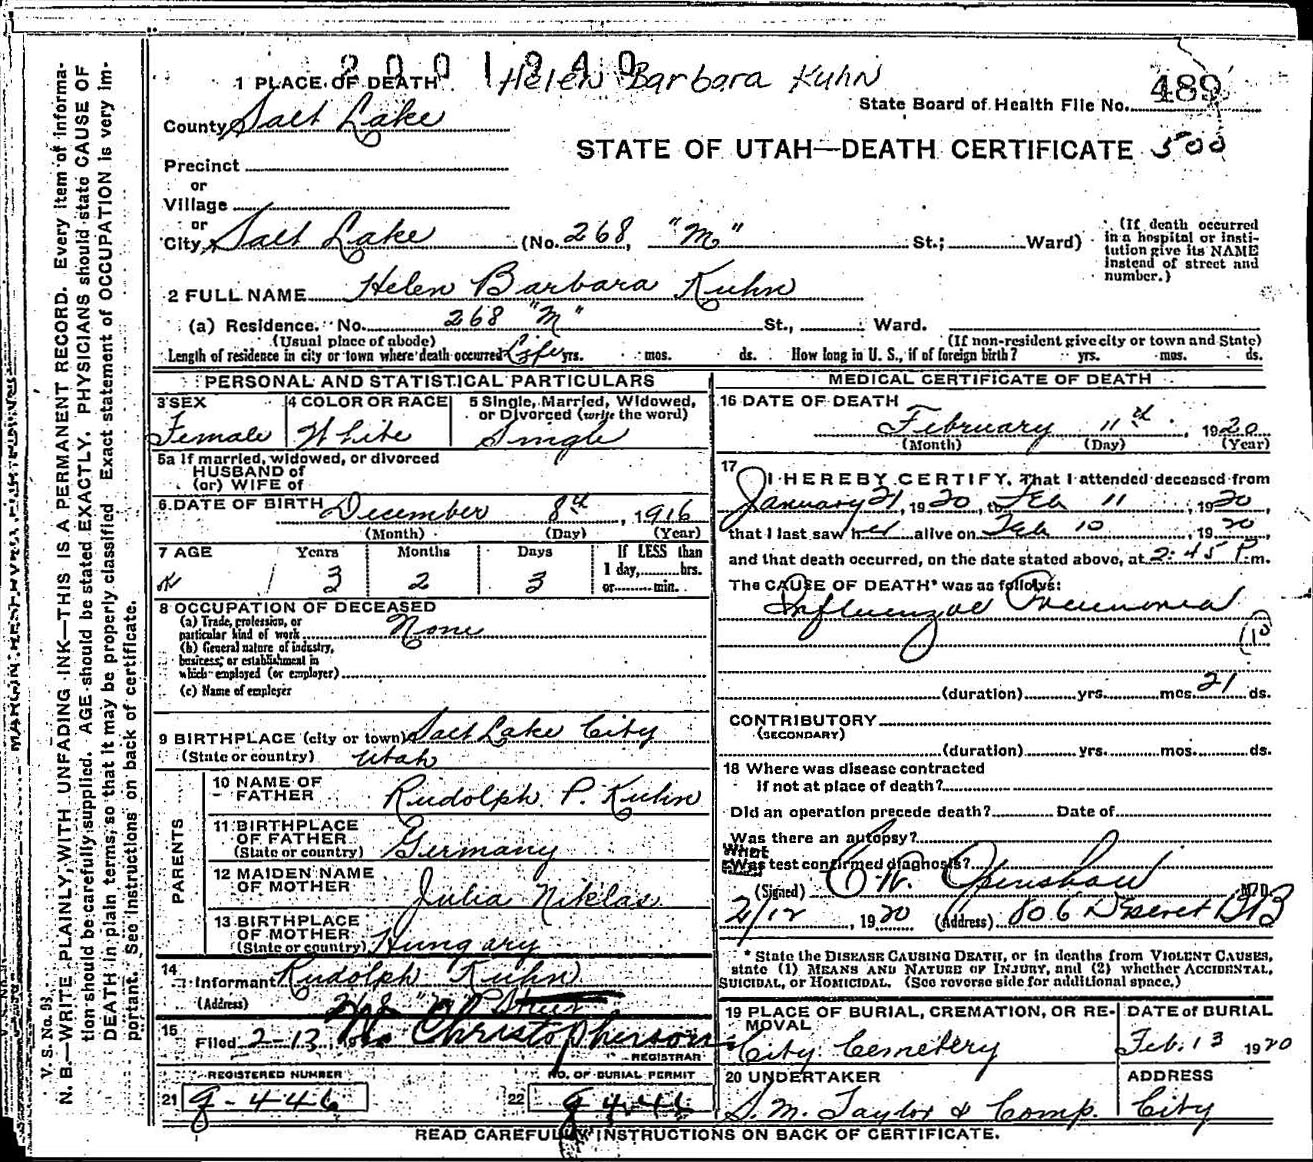 2001940
1 PLACE OF DEATH Helen Barbara Kuhn
State Board of Health File No. 489
County Salt Lake
STATE OF UTAH—DEATH CERTIFICATE 500
Precinct
or
Village
or
City Salt Lake (No. 268, "M" St.; Ward)
(If death occurred in a hospital or institution give its NAME instead of street and number.)
2 FULL NAME Helen Barbara Kuhn
(a) Residence. No. 268 "M" St., Ward.
(Usual place of abode) (If non-resident give city or town and State)
Length of residence in city or town where death occurred Life yrs. mos. ds. How long in U. S., if of foreign birth? yrs. mos. ds.
PERSONAL AND STATISTICAL PARTICULARS
3 SEX Female
4 COLOR OR RACE White
5 Single, Married, Widowed, or Divorced (write the word) Single
5a If married, widowed, or divorced
HUSBAND of
(or) WIFE of
6 DATE OF BIRTH December 8th, 1916
(Month) (Day) (Year)
7 AGE Years Months Days If LESS than
3 2 3 1 day, hrs.
or min.
8 OCCUPATION OF DECEASED
(a) Trade, profession, or
particular kind of work None
(b) General nature of industry,
business, or establishment in
which employed (or employer)
(c) Name of employer
9 BIRTHPLACE (city or town) Salt Lake City
(State or country) Utah
PARENTS
10 NAME OF FATHER Rudolph P. Kuhn
11 BIRTHPLACE OF FATHER (State or country) Germany
12 MAIDEN NAME OF MOTHER Julia Niklas
13 BIRTHPLACE OF MOTHER (State or country) Hungary
14 Informant Rudolph Kuhn
(Address) 268 "M" Street
15 Filed 2-13, Christopherson
REGISTRAR
REGISTERED NUMBER NO. OF BURIAL PERMIT
21 g-446 22 g 446
MEDICAL CERTIFICATE OF DEATH
16 DATE OF DEATH
February 11th, 1920
(Month) (Day) (Year)
17 I HEREBY CERTIFY, That I attended deceased from
January 21, 1920, to Feb 11, 1920
that I last saw her alive on Feb 10, 1920
and that death occurred, on the date stated above, at 2:45 P.m.
The CAUSE OF DEATH* was as follows:
Influenzae Pneumonia
(10)
(duration) yrs. mos. 21 ds.
CONTRIBUTORY
(SECONDARY)
(duration) yrs. mos. ds.
18 Where was disease contracted
If not at place of death?
Did an operation precede death? Date of
Was there an autopsy?
What test confirmed diagnosis?
(Signed) M. D.
2/12, 1920 (Address) 806 Deseret
* State the DISEASE CAUSING DEATH, or in deaths from VIOLENT CAUSES,
state (1) MEANS AND NATURE OF INJURY, and (2) whether ACCIDENTAL,
SUICIDAL, or HOMICIDAL. (See reverse side for additional space.)
19 PLACE OF BURIAL, CREMATION, OR REMOVAL DATE of BURIAL
City Cemetery Feb. 13 1920
20 UNDERTAKER ADDRESS
S. M. Taylor & Comp. City
READ CAREFULLY INSTRUCTIONS ON BACK OF CERTIFICATE.
V. S. No. 98
N. B.—WRITE PLAINLY, WITH UNFADING INK—THIS IS A PERMANENT RECORD. Every item of informa-
tion should be carefully supplied. AGE should be stated EXACTLY. PHYSICIANS should state CAUSE OF
DEATH in plain terms, so that it may be properly classified. Exact statement of OCCUPATION is very im-
portant. See instructions on back of certificate.